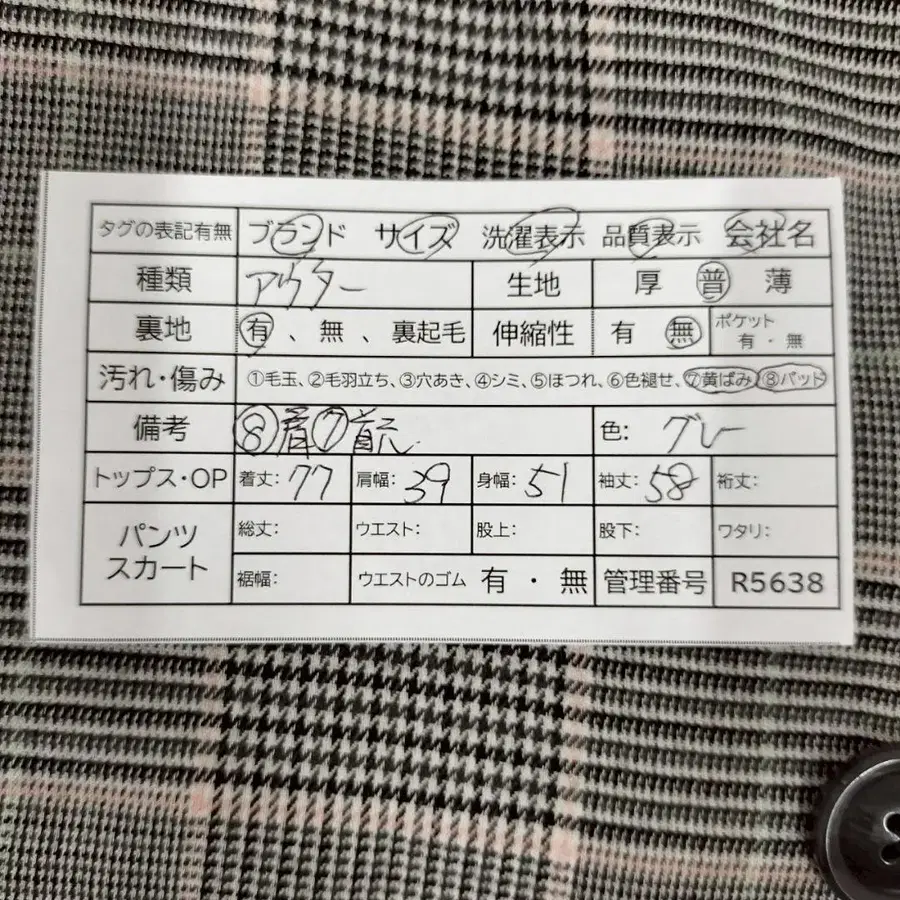 タグの表記有無 ブランド サイズ 洗濯表示 品質表示 会社名
種類 アウター 生地 厚 普 薄
裏地 有、無、裏起毛 伸縮性 有 無 ポケット 有・無
汚れ・傷み ①毛玉、②毛羽立ち、③穴あき、④シミ、⑤ほつれ、⑥色褪せ、⑦黄ばみ ⑧パッド
備考 ⑧肩⑦首元 色: グレー
トップス・OP 着丈: 77 肩幅: 39 身幅: 51 袖丈: 58 裄丈:
パンツ スカート 総丈: ウエスト: 股上: 股下: ワタリ:
裾幅: ウエストのゴム 有・無 管理番号 R5638